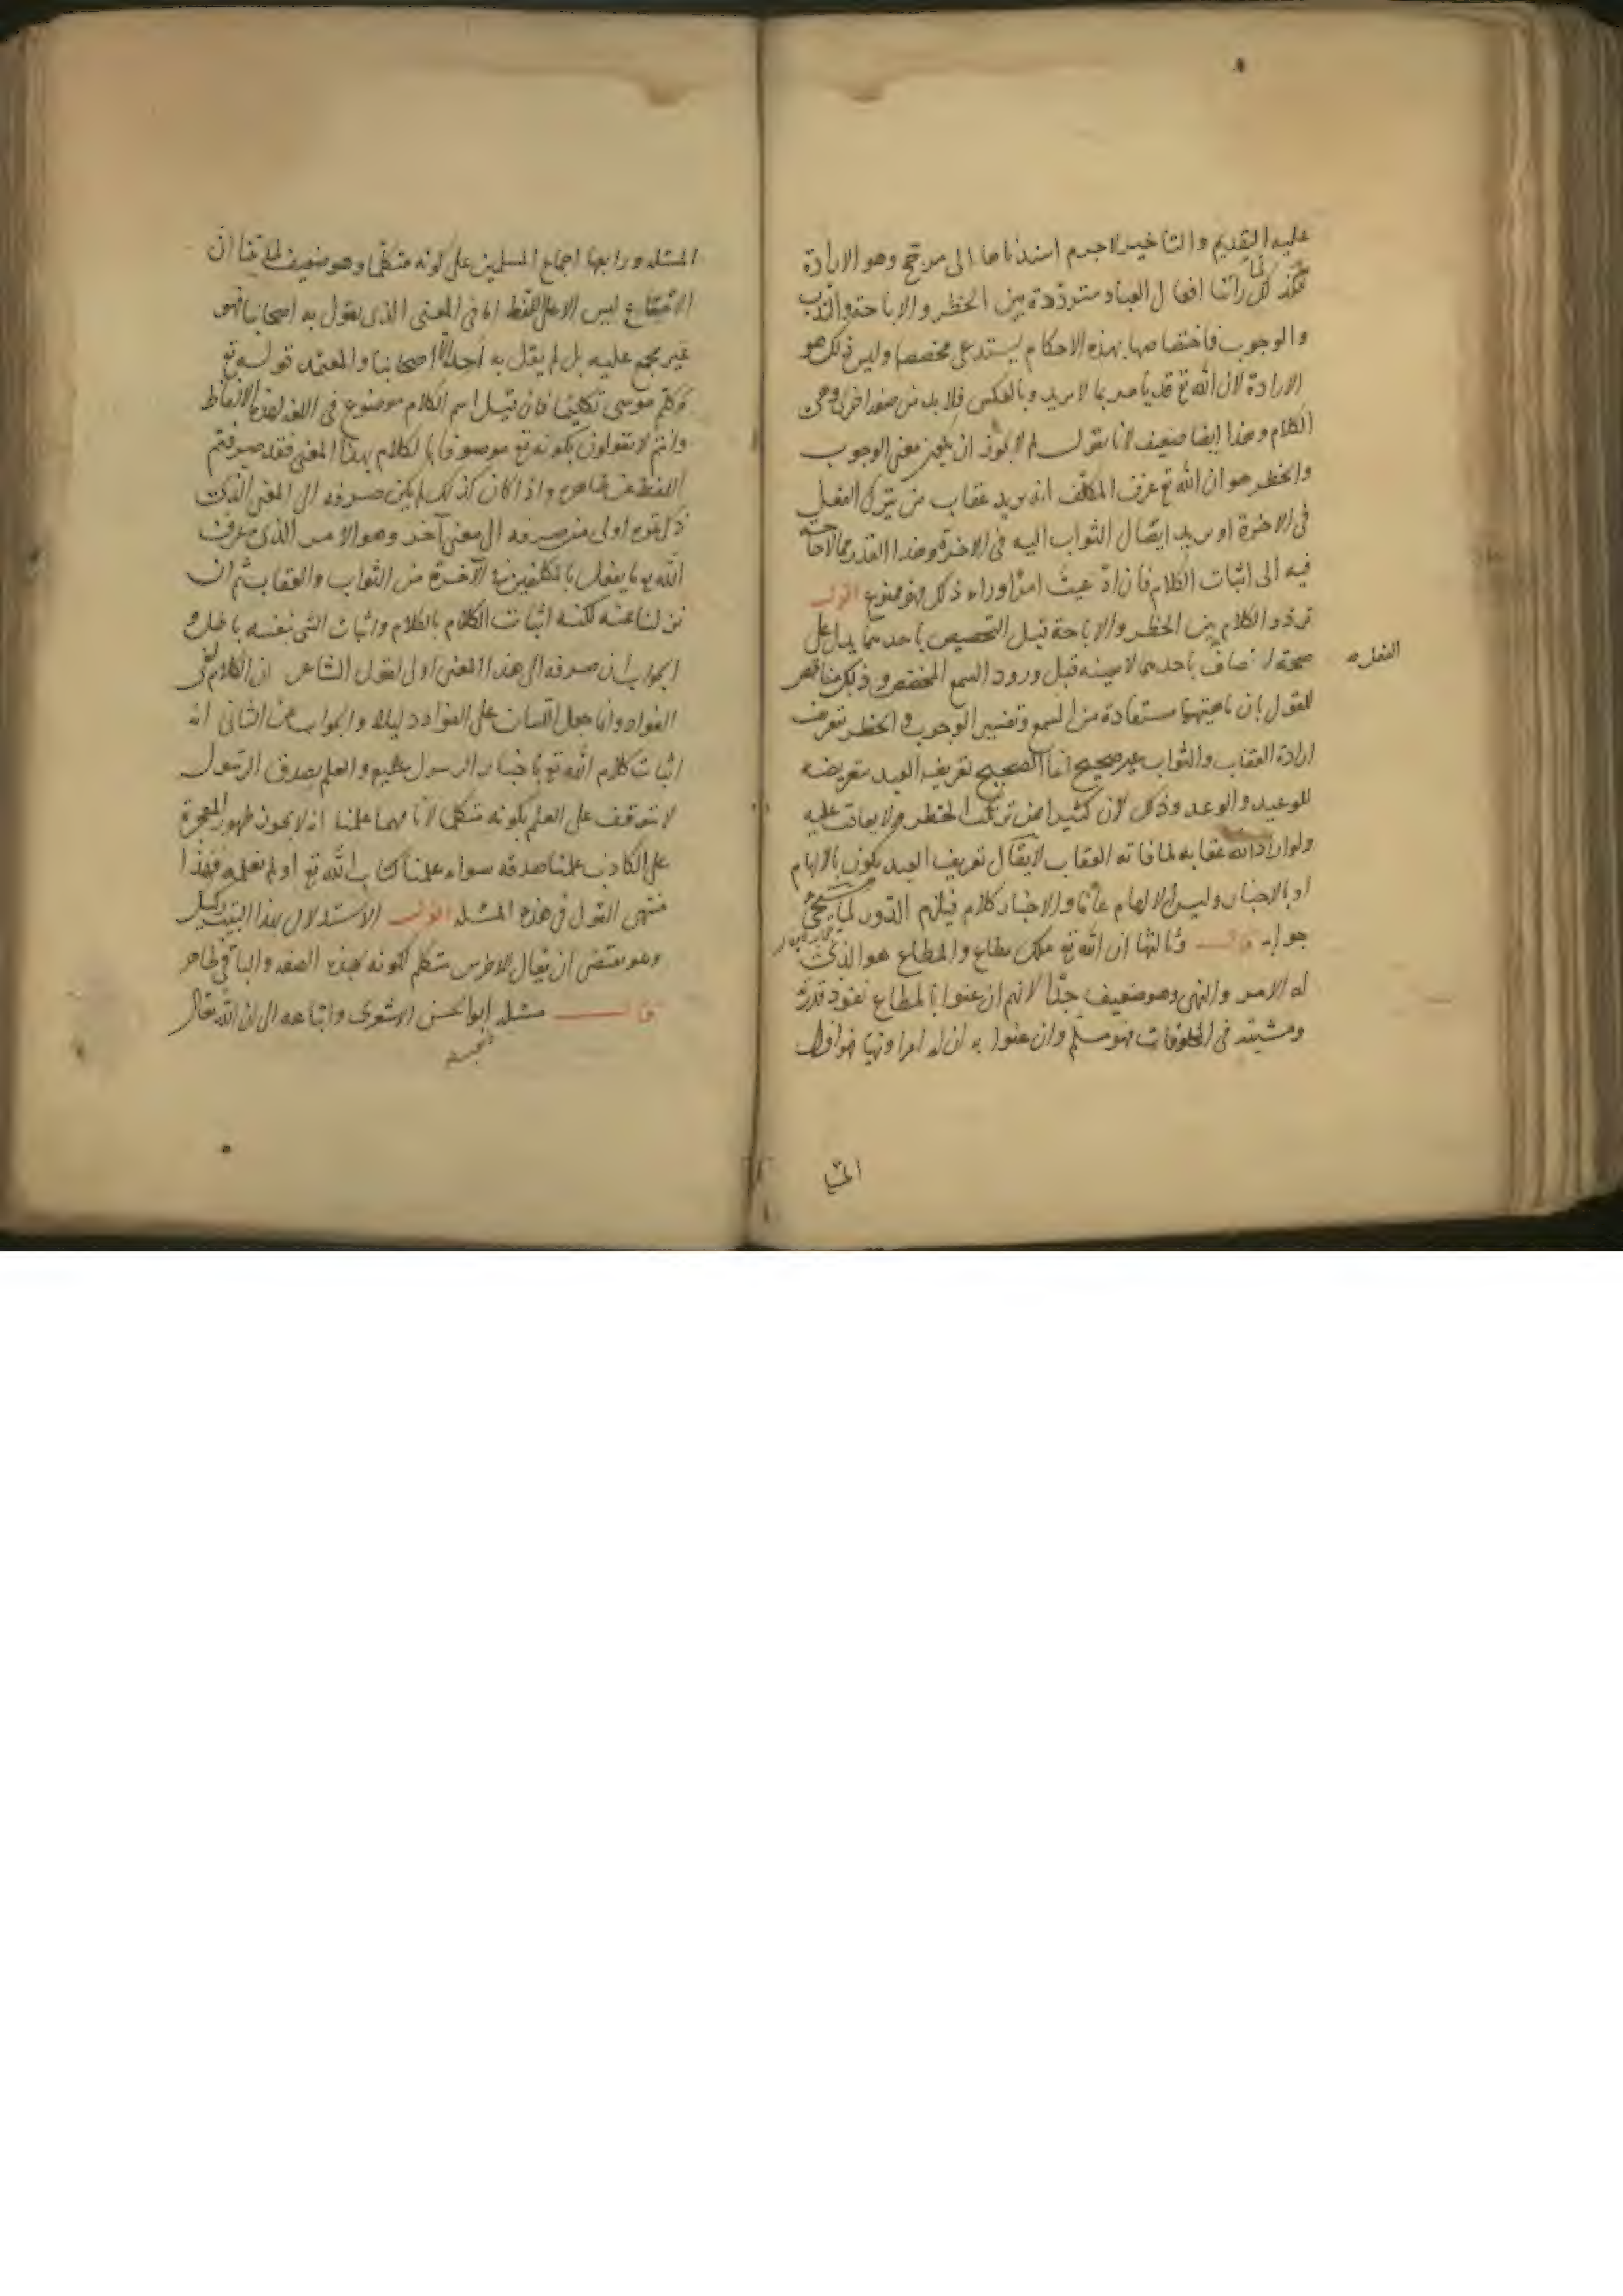 عليه التقديم والتاخير لاجرم اسندناها الى مرجح وهو الارادة
فكذلك لما راينا افعال العباد مترددة بين الحظر والاباحة والندب
والوجوب فاختصاصها بهذه الاحكام يستدعى مخصصا وليس ذلك هو
الارادة لان الله تع قد يامر بما لا يريد وبالعكس فلا بد من صفة اخرى وهى
الكلام وهذا ايضا ضعيف لانا نقول لم لا يجوز ان يكون معنى الوجوب
والحظر هو ان الله تع عرف المكلف انه يريد عقاب من يترك الفعل
فى الاخرة او يريد ايصال الثواب اليه فى الاخرة وهذا القدر مما لا حاجة
فيه الى اثبات الكلام فان ادعيت امرا وراء ذلك فهو ممنوع اقول
تردد الكلام بين الحظر والاباحة قبل التخصيص باحدهما يدل على
صحة اتصاف باحدهما لا بعينه قبل ورود السمع المخصص وذلك مناقض
الفعل
للقول بان ماهيتهما مستفادة من السمع وتفسير الوجوب والحظر بتعريف
ارادة العقاب والثواب غير صحيح انما الصحيح تعريف العبد بتعريضه
للوعيد والوعد وذلك لان كثيرا ممن ترتكب الحظر ولا يعاقب عليه
ولو اراد الله عقابه لما فاته العقاب لا يقال تعريف العبد يكون بالالهام
او بالاخبار وليس الالهام عاما والاخبار كلام فيلزم الدور لما سيجئ
جوابه قال وثالثها ان الله تع ملك مطاع والمطاع هو الذى
له الامر والنهى وهو ضعيف جدا لانهم ان عنوا بالمطاع نفوذ قدرته
ومشيته فى المخلوقات فهو مسلم وان عنوا به ان له امرا ونهيا فهو اول
المسئلة ورابعها اجماع المسلمين على كونه متكلما وهو ضعيف لما بينا ان
الاجماع ليس الا على اللفظ اما فى المعنى الذى يقول به اصحابنا فهو
غير مجمع عليه بل لم يقل به احد الا اصحابنا والمعتمد قوله تع
وكلم موسى تكليما فان قيل اسم الكلام موضوع فى اللغة لهذه الالفاظ
وانتم لا تقولون بكونه تع موصوفا بالكلام بهذا المعنى فقد صرفتم
اللفظ عن ظاهره واذا كان كذلك لم يكن صرفه الى المعنى الذى
ذكرتموه اولى من صرفه الى معنى آخر وهو الامر الذى عرف
الله به ما يفعل بالمكلفين فى الآخرة من الثواب والعقاب ثم ان
نزلنا عنه لكنه اثبات الكلام بالكلام واثبات الشى بنفسه باطل و
الجواب ان صرفه الى هذا المعنى اولى لقول الشاعر ان الكلام لفى
الفواد وانما جعل اللسان على الفواد دليلا والجواب عن الثانى انه
اثبات كلام الله تع باخبار الرسول عليه والعلم بصدق الرسول
لا يتوقف على العلم بكونه متكلما لانا مهما علمنا انه لا يجوز ظهور المعجزة
على الكاذب علمنا صدقه سواء علمنا كتاب الله تع او لم نعلمه فهذا
منتهى القول فى هذه المسئلة اقول الاستدلال بهذا البيت ركيك
وهو يقتضى ان يقال للاخرس متكلم لكونه بهذه الصفة والباقى ظاهر
قال مسئلة ابو الحسن الاشعرى واتباعه الى ان الله تعالى